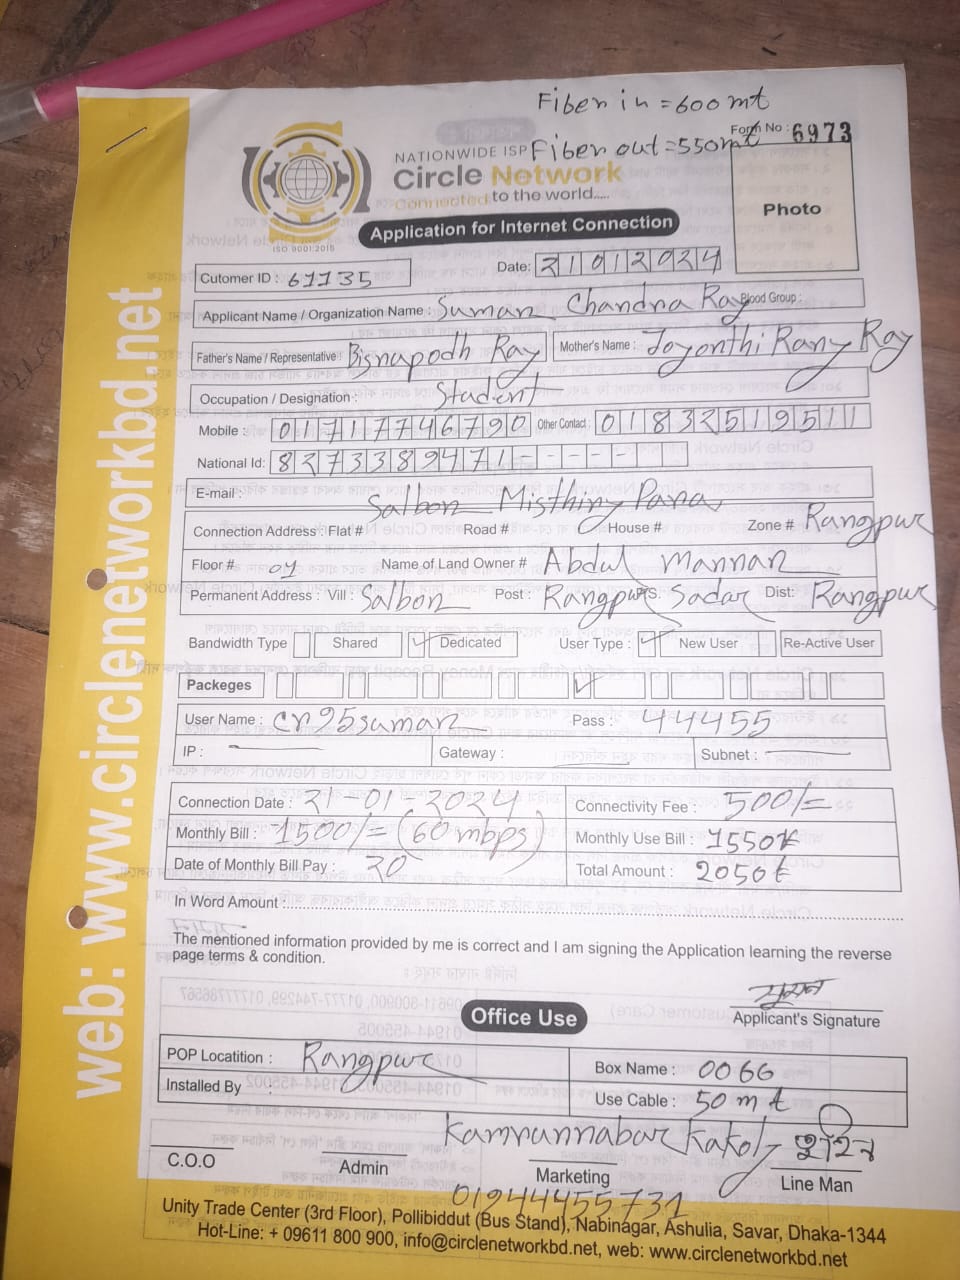 Fiber in = 600 mt
Form No : 6973
NATIONWIDE ISP Fiber out = 550mt
Circle Network
Connected to the world.....
ISO 9001:2015
Photo
Application for Internet Connection
Cutomer ID : 61135 Date: 21012024
Applicant Name / Organization Name : Suman Chandra Ray Blood Group :
Father's Name / Representative Bisnapodh Ray Mother's Name : Joyonthi Rany Ray
Occupation / Designation : Student
Mobile : 01717746790 Other Contact : 01832519511
National Id: 8273389471------
E-mail :
Salbon Misthiry Para
Connection Address : Flat # Road # House # Zone # Rangpur
Floor # 01 Name of Land Owner # Abdul Mannan
Permanent Address : Vill : Salbon Post : Rangpur P.S: Sadar Dist: Rangpur
Bandwidth Type Shared ✓ Dedicated User Type : ✓ New User Re-Active User
Packeges ✓
User Name : cn95suman Pass : 44455
IP : Gateway : Subnet :
Connection Date : 21-01-2024 Connectivity Fee : 500/=
Monthly Bill : 1500/= (60 mbps) Monthly Use Bill : 1550t
Date of Monthly Bill Pay : 20 Total Amount : 2050t
In Word Amount :
The mentioned information provided by me is correct and I am signing the Application learning the reverse
page terms & condition.
সুমন
Applicant's Signature
Office Use
POP Locatition : Rangpur Box Name : 0066
Installed By : Use Cable : 50 mt
Kamrunnabar Kakol
C.O.O Admin Marketing Line Man
01944455731
Unity Trade Center (3rd Floor), Pollibiddut (Bus Stand), Nabinagar, Ashulia, Savar, Dhaka-1344
Hot-Line: + 09611 800 900, info@circlenetworkbd.net, web: www.circlenetworkbd.net
web: www.circlenetworkbd.net